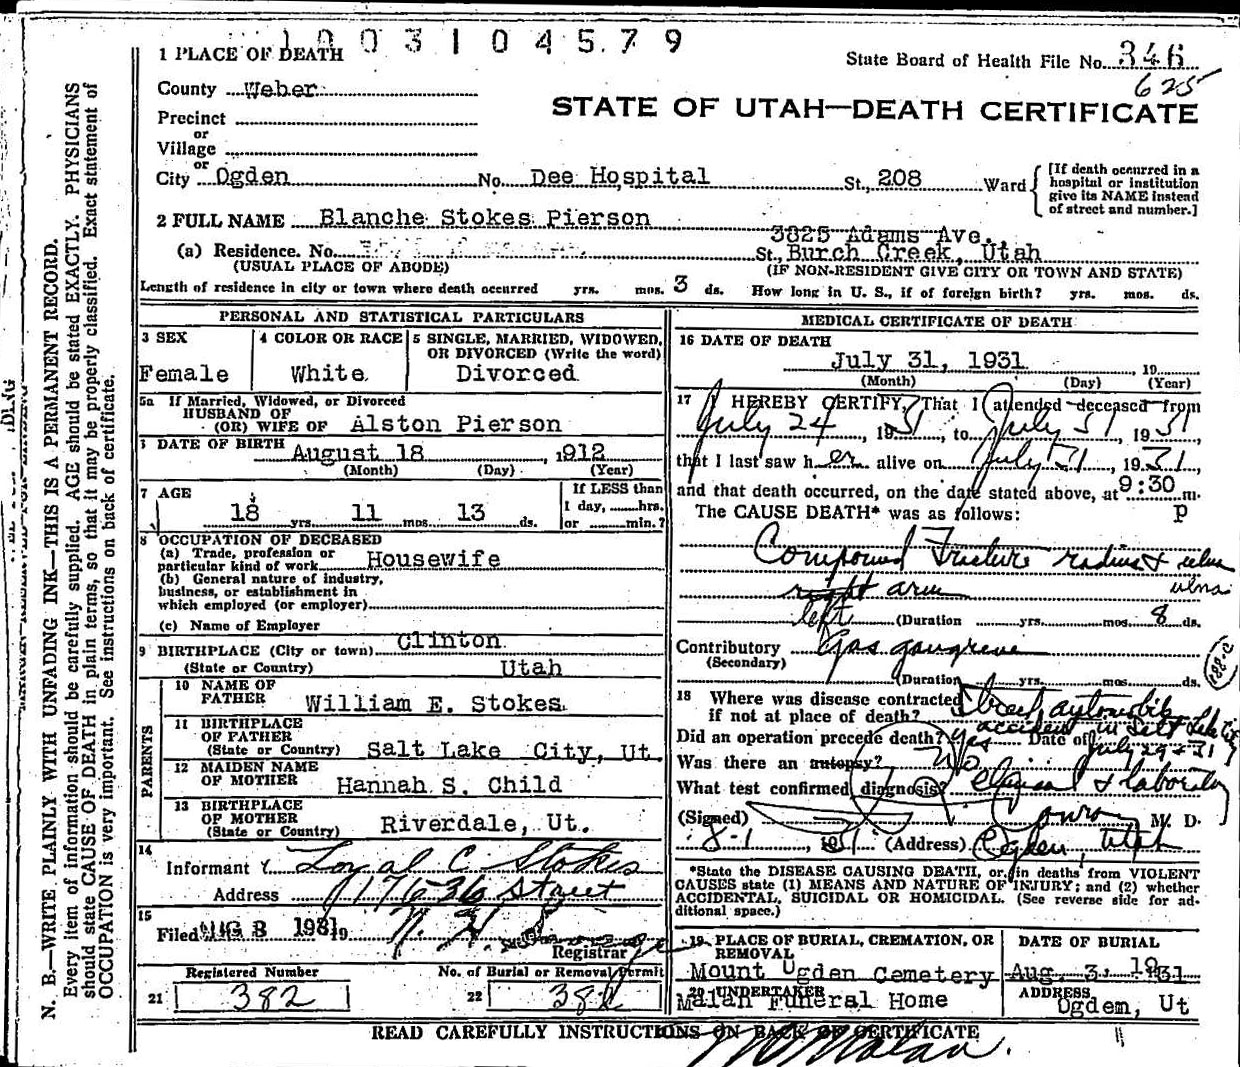 1003104579
1 PLACE OF DEATH
State Board of Health File No. 346
625
County Weber
STATE OF UTAH—DEATH CERTIFICATE
Precinct
or
Village
or
City Ogden No. Dee Hospital St., 208 Ward
[If death occurred in a hospital or institution give its NAME instead of street and number.]
2 FULL NAME Blanche Stokes Pierson
3825 Adams Ave.
(a) Residence. No. St., Burch Creek, Utah
(USUAL PLACE OF ABODE) (IF NON-RESIDENT GIVE CITY OR TOWN AND STATE)
Length of residence in city or town where death occurred yrs. mos. 3 ds. How long in U. S., if of foreign birth? yrs. mos. ds.
N. B.—WRITE PLAINLY WITH UNFADING INK—THIS IS A PERMANENT RECORD.
Every item of information should be carefully supplied. AGE should be stated EXACTLY. PHYSICIANS
should state CAUSE OF DEATH in plain terms, so that it may be properly classified. Exact statement of
OCCUPATION is very important. See instructions on back of certificate.
PERSONAL AND STATISTICAL PARTICULARS
3 SEX 4 COLOR OR RACE 5 SINGLE, MARRIED, WIDOWED,
OR DIVORCED (Write the word)
Female White Divorced
5a If Married, Widowed, or Divorced
HUSBAND OF
(OR) WIFE OF Alston Pierson
DATE OF BIRTH August 18, 1912
(Month) (Day) (Year)
7 AGE If LESS than
18 yrs. 11 mos. 13 ds. 1 day, hrs.
or min.?
8 OCCUPATION OF DECEASED
(a) Trade, profession or
particular kind of work Housewife
(b) General nature of industry,
business, or establishment in
which employed (or employer)
(c) Name of Employer
9 BIRTHPLACE (City or town) Clinton
(State or Country) Utah
PARENTS
10 NAME OF
FATHER William E. Stokes
11 BIRTHPLACE
OF FATHER
(State or Country) Salt Lake City, Ut.
12 MAIDEN NAME
OF MOTHER Hannah S. Child
13 BIRTHPLACE
OF MOTHER
(State or Country) Riverdale, Ut.
14
Informant Loyal C Stokes
Address 36 Street
15
Filed AUG 3 1931 19 N. H.
Registrar
Registered Number No. of Burial or Removal Permit
21 382 22 382
MEDICAL CERTIFICATE OF DEATH
16 DATE OF DEATH
July 31, 1931 19
(Month) (Day) (Year)
17 I HEREBY CERTIFY, That I attended deceased from
July 24, 1931, to July 31, 1931
that I last saw her alive on July 31, 1931,
and that death occurred, on the date stated above, at 9:30 m.
The CAUSE DEATH* was as follows: P
Compound Fracture radius & ulna
right arm ulna
left (Duration yrs. mos. 8 ds.
Contributory Gas gangrene
(Secondary)
(Duration yrs. mos. ds.
18 Where was disease contracted
if not at place of death? automobile
accident in Salt Lake City
Did an operation precede death? Yes Date of July 29-31
Was there an autopsy? No
What test confirmed diagnosis? Clinical & laboratory
(Signed) M. D.
8-1, 1931 (Address) Ogden, Utah
*State the DISEASE CAUSING DEATH, or, in deaths from VIOLENT
CAUSES state (1) MEANS AND NATURE OF INJURY; and (2) whether
ACCIDENTAL, SUICIDAL OR HOMICIDAL. (See reverse side for additional space.)
19 PLACE OF BURIAL, CREMATION, OR REMOVAL DATE OF BURIAL
Mount Ogden Cemetery Aug. 3, 1931
20 UNDERTAKER ADDRESS
Malan Funeral Home Ogdem, Ut
READ CAREFULLY INSTRUCTIONS ON BACK OF CERTIFICATE
Malan